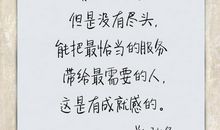 但是没有尽头,
能把最恰当的服务
带给最需要的人,
这是有成就感的。